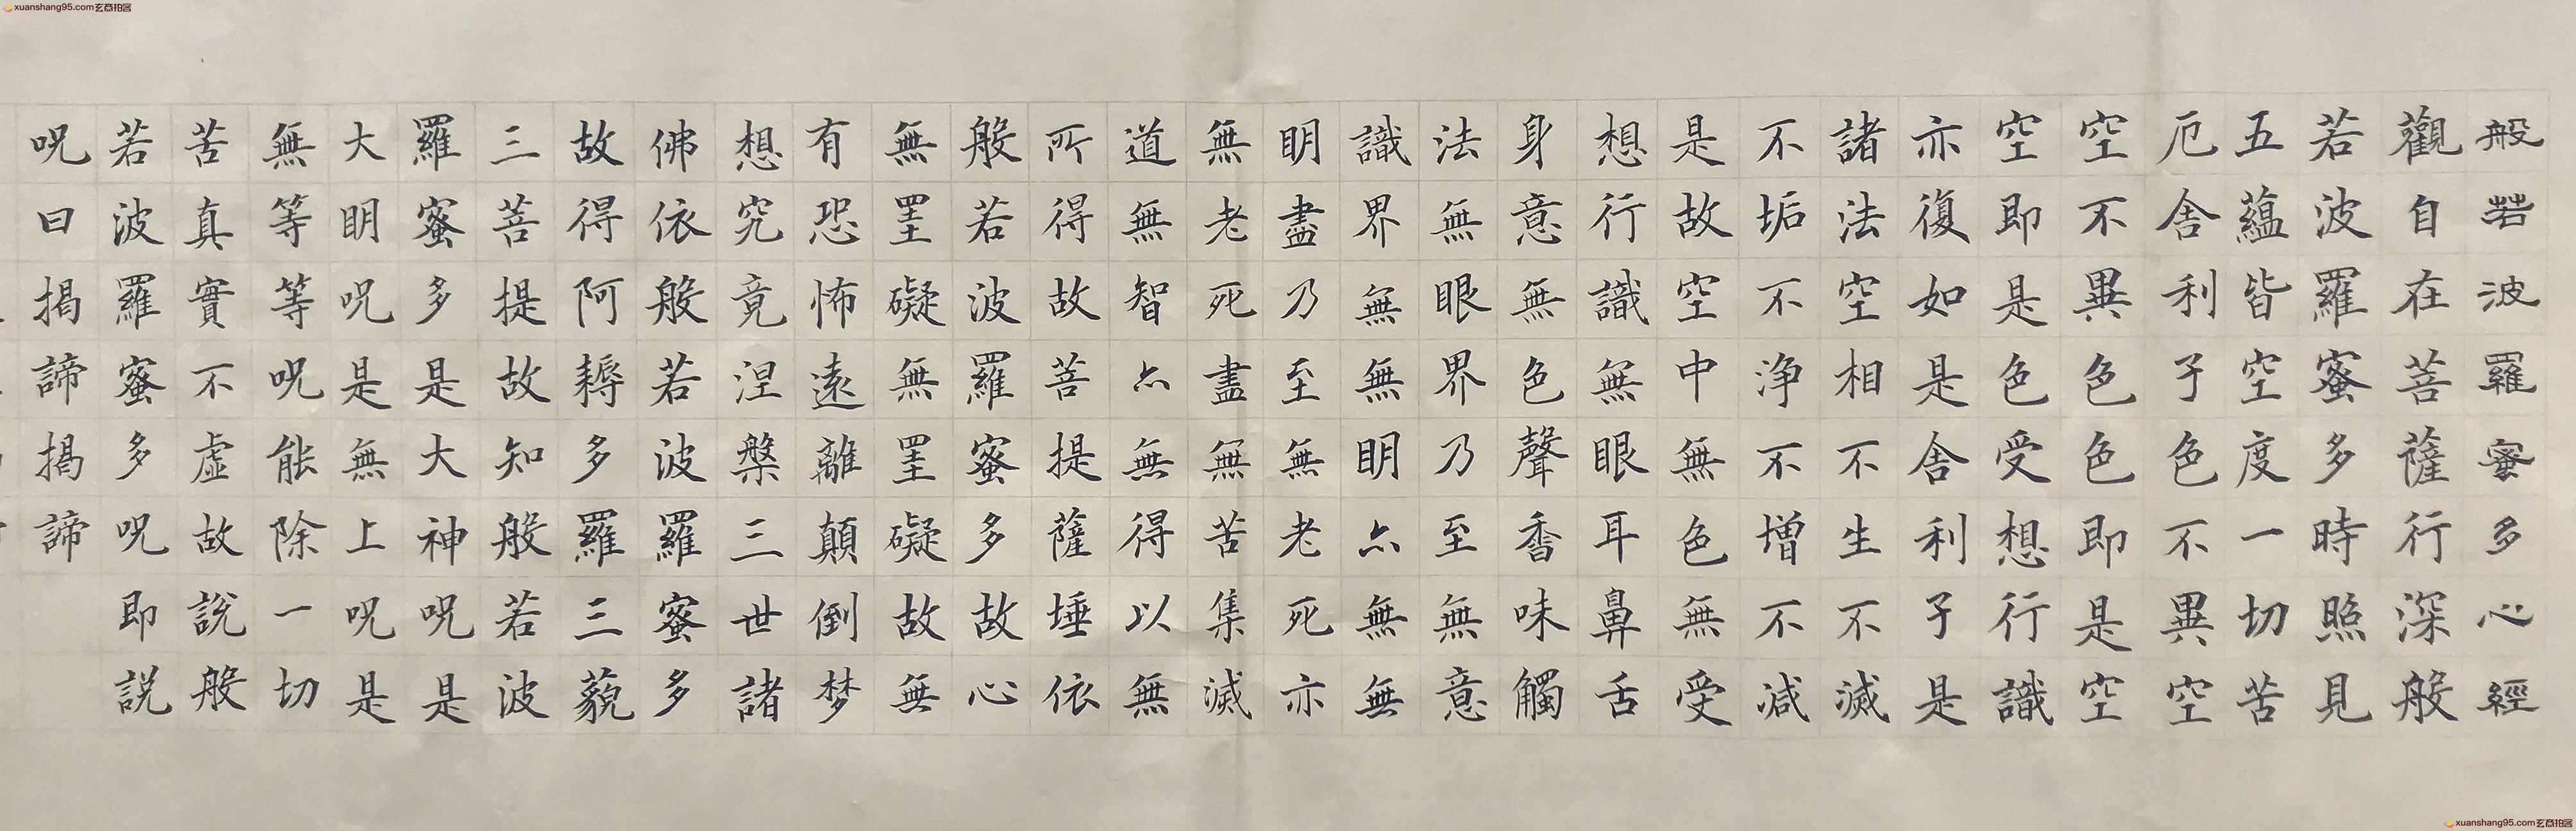 xuanshang95.com玄商拍客
般若波羅蜜多心經
觀自在菩薩行深般
若波羅蜜多時照見
五蘊皆空度一切苦
厄舍利子色不異空
空不異色色即是空
空即是色受想行識
亦復如是舍利子是
諸法空相不生不滅
不垢不淨不增不減
是故空中無色無受
想行識無眼耳鼻舌
身意無色聲香味觸
法無眼界乃至無意
識界無無明亦無無
明盡乃至無老死亦
無老死盡無苦集滅
道無智亦無得以無
所得故菩提薩埵依
般若波羅蜜多故心
無罣礙無罣礙故無
有恐怖遠離顛倒梦
想究竟涅槃三世諸
佛依般若波羅蜜多
故得阿耨多羅三藐
三菩提故知般若波
羅蜜多是大神呪是
大明呪是無上呪是
無等等呪能除一切
苦真實不虛故說般
若波羅蜜多呪即説
呪曰揭諦揭諦
xuanshang95.com玄商拍客